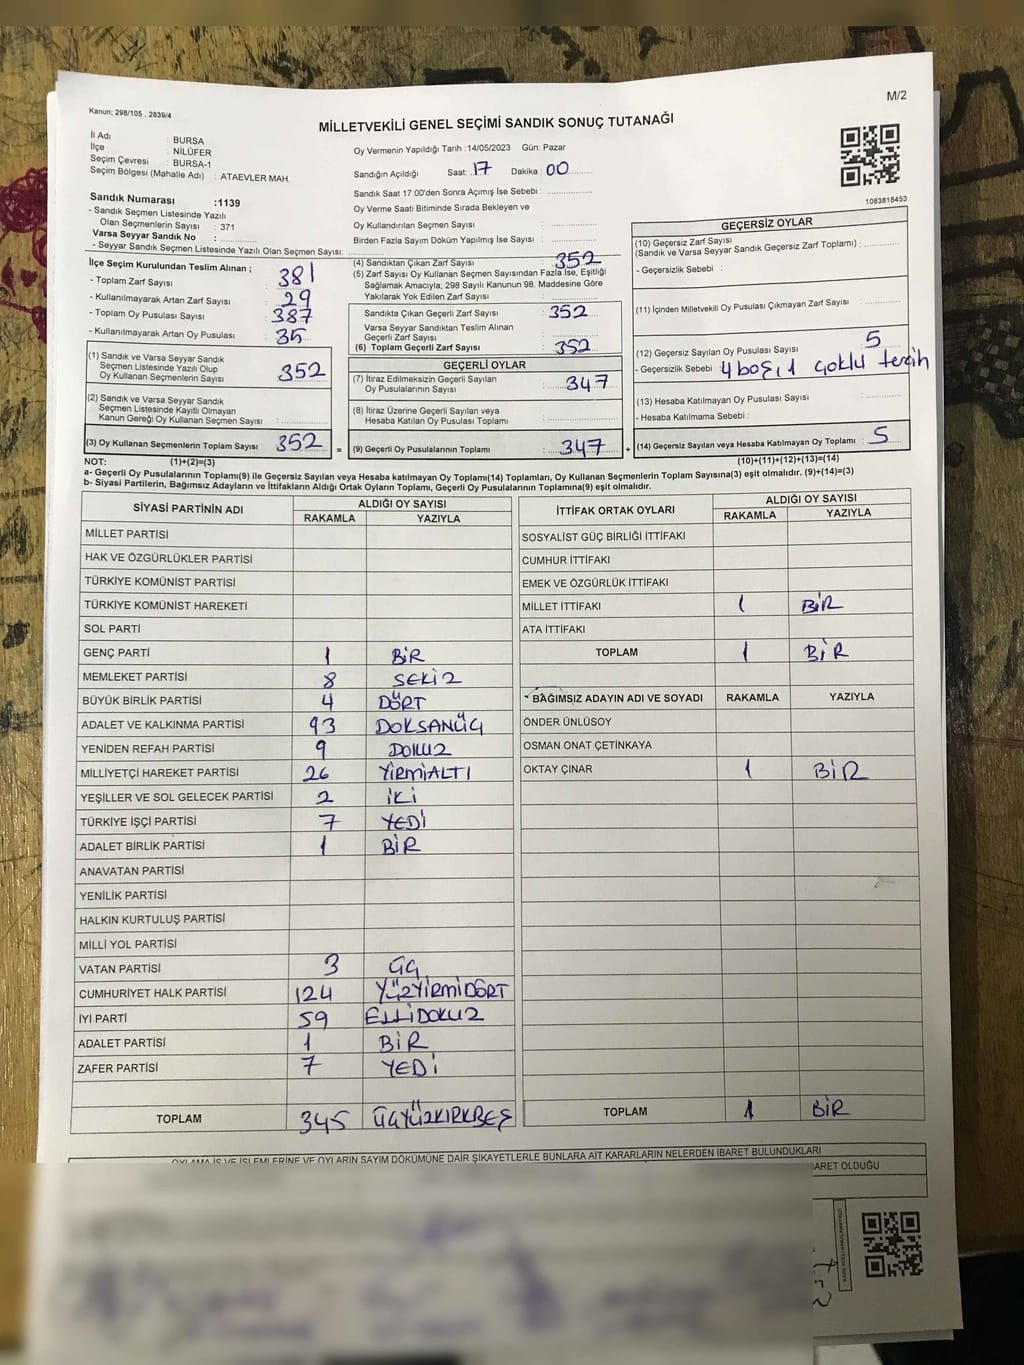 Kanun: 298/105 , 2839/4
M/2
MİLLETVEKİLİ GENEL SEÇİMİ SANDIK SONUÇ TUTANAĞI
İl Adı : BURSA
İlçe : NİLÜFER
Seçim Çevresi : BURSA-1
Seçim Bölgesi (Mahalle Adı) : ATAEVLER MAH.
Oy Vermenin Yapıldığı Tarih :14/05/2023 Gün: Pazar
Sandığın Açıldığı Saat: 17 Dakika: 00
Sandık Saat 17:00'den Sonra Açımış İse Sebebi :
Oy Verme Saati Bitiminde Sırada Bekleyen ve
Oy Kullandırılan Seçmen Sayısı :
Birden Fazla Sayım Döküm Yapılmış İse Sayısı :
1083818453
Sandık Numarası :1139
- Sandık Seçmen Listesinde Yazılı
Olan Seçmenlerin Sayısı : 371
Varsa Seyyar Sandık No :
- Seyyar Sandık Seçmen Listesinde Yazılı Olan Seçmen Sayısı:
İlçe Seçim Kurulundan Teslim Alınan ;
- Toplam Zarf Sayısı : 381
- Kullanılmayarak Artan Zarf Sayısı : 29
- Toplam Oy Pusulası : 387
- Kullanılmayarak Artan Oy Pusulası : 35
(1) Sandık ve Varsa Seyyar Sandık
Seçmen Listesinde Yazılı Olup
Oy Kullanan Seçmenlerin Sayısı : 352
(2) Sandık ve Varsa Seyyar Sandık
Seçmen Listesinde Kayıtlı Olmayan
Kanun Gereği Oy Kullanan Seçmen Sayısı :
(3) Oy Kullanan Seçmenlerin Toplam Sayısı : 352 =
(4) Sandıktan Çıkan Zarf Sayısı : 352
(5) Zarf Sayısı Oy Kullanan Seçmen Sayısından Fazla İse, Eşitliği
Sağlamak Amacıyla; 298 Sayılı Kanunun 98. Maddesine Göre
Yakılarak Yok Edilen Zarf Sayısı :
Sandıkta Çıkan Geçerli Zarf Sayısı : 352
Varsa Seyyar Sandıktan Teslim Alınan
Geçerli Zarf Sayısı :
(6) Toplam Geçerli Zarf Sayısı : 352
GEÇERLİ OYLAR
(7) İtiraz Edilmeksizin Geçerli Sayılan
Oy Pusulalarının Sayısı : 347
(8) İtiraz Üzerine Geçerli Sayılan veya
Hesaba Katılan Oy Pusulası Toplamı :
(9) Geçerli Oy Pusulalarının Toplamı : 347 +
GEÇERSİZ OYLAR
(10) Geçersiz Zarf Sayısı
(Sandık ve Varsa Seyyar Sandık Geçersiz Zarf Toplamı) :
- Geçersizlik Sebebi :
(11) İçinden Milletvekili Oy Pusulası Çıkmayan Zarf Sayısı :
(12) Geçersiz Sayılan Oy Pusulası Sayısı : 5
- Geçersizlik Sebebi 4 boş, 1 çoklu tercih
(13) Hesaba Katılmayan Oy Pusulası Sayısı :
- Hesaba Katılmama Sebebi :
(14) Geçersiz Sayılan veya Hesaba Katılmayan Oy Toplamı : 5
NOT: (1)+(2)=(3)
(10)+(11)+(12)+(13)=(14)
a- Geçerli Oy Pusulalarının Toplamı(9) ile Geçersiz Sayılan veya Hesaba katılmayan Oy Toplamı(14) Toplamları, Oy Kullanan Seçmenlerin Toplam Sayısına(3) eşit olmalıdır. (9)+(14)=(3)
b- Siyasi Partilerin, Bağımsız Adayların ve İttifakların Aldığı Ortak Oyların Toplamı, Geçerli Oy Pusulalarının Toplamına(9) eşit olmalıdır.
SİYASİ PARTİNİN ADI ALDIĞI OY SAYISI
RAKAMLA YAZIYLA
MİLLET PARTİSİ
HAK VE ÖZGÜRLÜKLER PARTİSİ
TÜRKİYE KOMÜNİST PARTİSİ
TÜRKİYE KOMÜNİST HAREKETİ
SOL PARTİ
GENÇ PARTİ 1 BİR
MEMLEKET PARTİSİ 8 SEKİZ
BÜYÜK BİRLİK PARTİSİ 4 DÖRT
ADALET VE KALKINMA PARTİSİ 93 DOKSANÜÇ
YENİDEN REFAH PARTİSİ 9 DOKUZ
MİLLİYETÇİ HAREKET PARTİSİ 26 YİRMİALTI
YEŞİLLER VE SOL GELECEK PARTİSİ 2 İKİ
TÜRKİYE İŞÇİ PARTİSİ 7 YEDİ
ADALET BİRLİK PARTİSİ 1 BİR
ANAVATAN PARTİSİ
YENİLİK PARTİSİ
HALKIN KURTULUŞ PARTİSİ
MİLLİ YOL PARTİSİ
VATAN PARTİSİ 3 ÜÇ
CUMHURİYET HALK PARTİSİ 124 YÜZYİRMİDÖRT
İYİ PARTİ 59 ELLİDOKUZ
ADALET PARTİSİ 1 BİR
ZAFER PARTİSİ 7 YEDİ
TOPLAM 345 ÜÇYÜZKIRKBEŞ
İTTİFAK ORTAK OYLARI ALDIĞI OY SAYISI
RAKAMLA YAZIYLA
SOSYALİST GÜÇ BİRLİĞİ İTTİFAKI
CUMHUR İTTİFAKI
EMEK VE ÖZGÜRLÜK İTTİFAKI
MİLLET İTTİFAKI 1 BİR
ATA İTTİFAKI
TOPLAM 1 BİR
BAĞIMSIZ ADAYIN ADI VE SOYADI RAKAMLA YAZIYLA
ÖNDER ÜNLÜSOY
OSMAN ONAT ÇETİNKAYA
OKTAY ÇINAR 1 BİR
TOPLAM 1 BİR
OYLAMA İŞ VE İŞLEMLERİNE VE OYLARIN SAYIM DÖKÜMÜNE DAİR ŞİKAYETLERLE BUNLARA AİT KARARLARIN NELERDEN İBARET BULUNDUKLARI
İBARET OLDUĞU